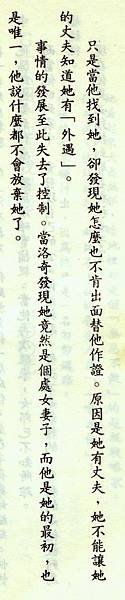 只是當他找到她，卻發現她怎麼也不肯出面替他作證。原因是她有丈夫，她不能讓她
的丈夫知道她有「外遇」。
事情的發展至此失去了控制。當洛奇發現她竟然是個處女妻子，而他是她的最初，也
是唯一，他說什麼都不會放棄她了。